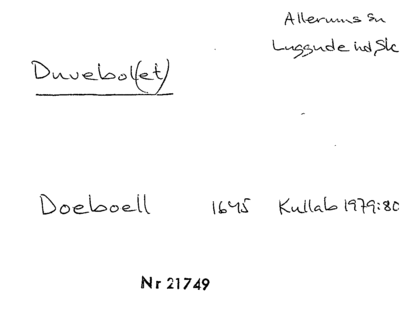 Allerums sn
Luggude hd, Sk
Duvebol(et)
Doeboell 1645 Kullab 1979:80
Nr 21749